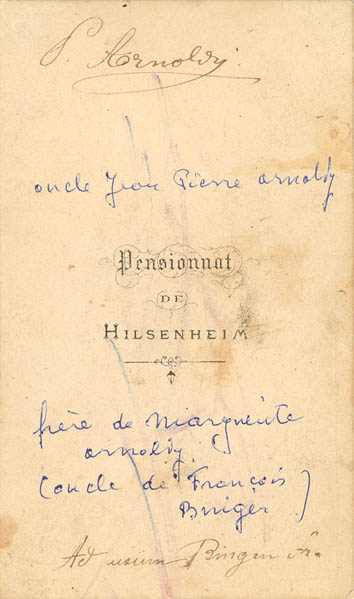 P. Arnoldy.
oncle Jean Pierre arnoldy
Pensionnat
DE
HILSENHEIM
frère de Marguerite
arnoldy
(oncle de François
Ad usum Bingen